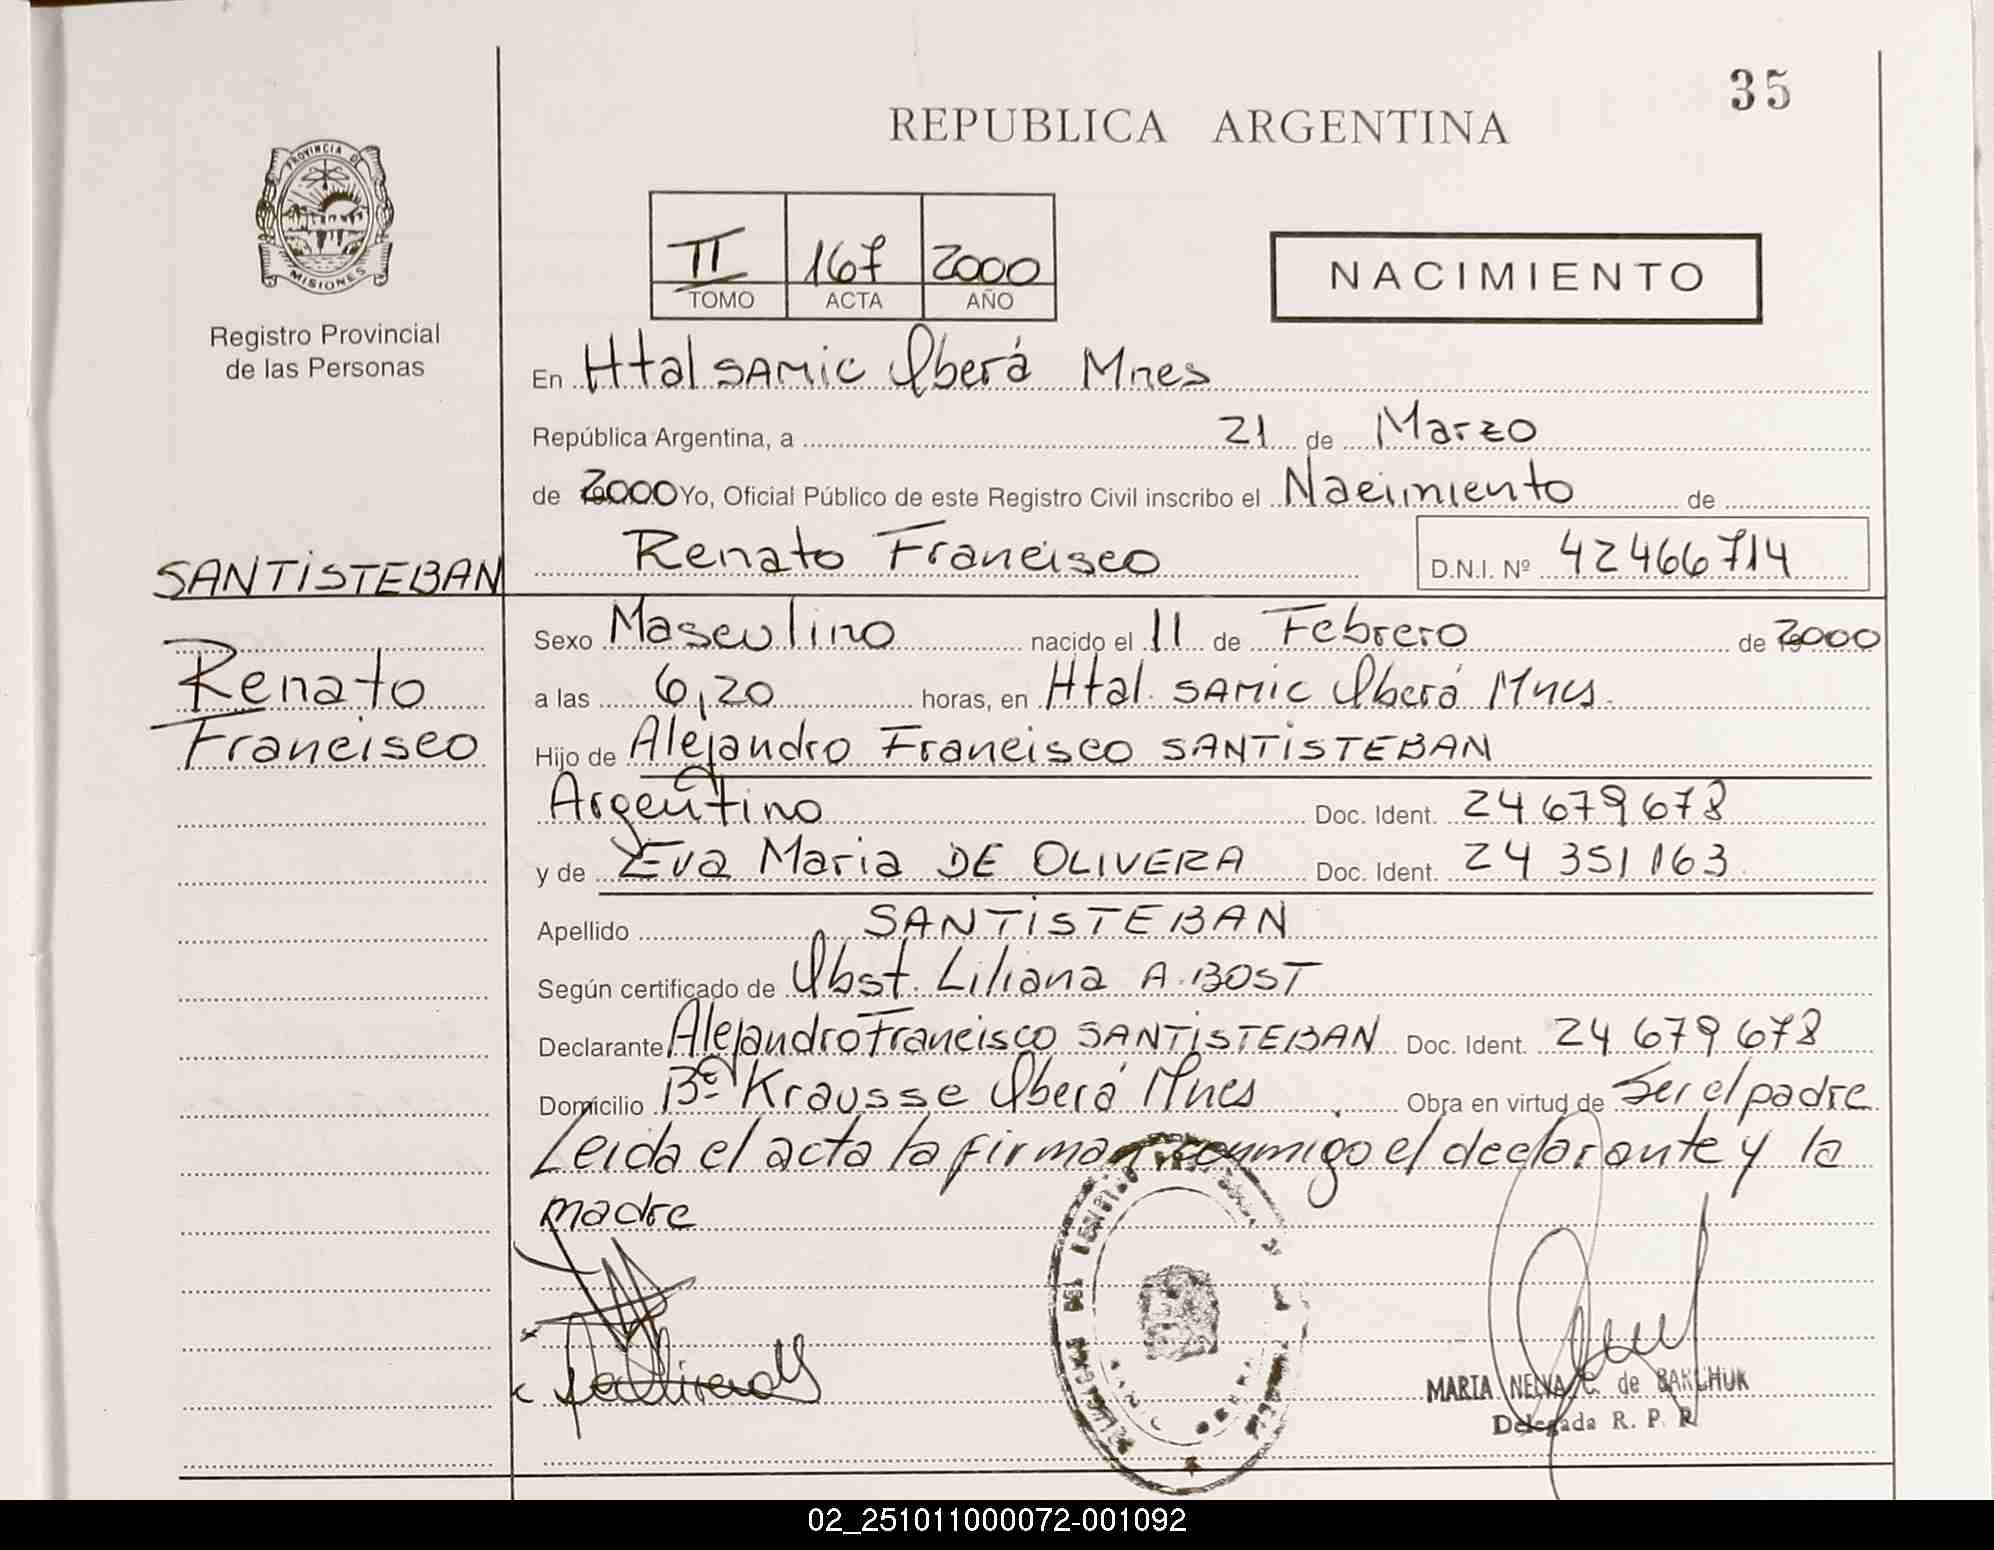 35
REPUBLICA ARGENTINA
PROVINCIA DE
MISIONES
Registro Provincial
de las Personas
II 167 2000
TOMO ACTA AÑO
NACIMIENTO
En Htal SAMIC Oberá Mnes
República Argentina, a 21 de Marzo
de 2000 Yo, Oficial Público de este Registro Civil inscribo el Nacimiento de
Renato Francisco D.N.I. Nº 42466714
SANTISTEBAN
Renato
Francisco
Sexo Masculino nacido el 11 de Febrero de 2000
a las 6,20 horas, en Htal. SAMIC Oberá Mnes.
Hijo de Alejandro Francisco SANTISTEBAN
Argentino Doc. Ident. 24 679 678
y de Eva Maria DE OLIVERA Doc. Ident. 24 351 163
Apellido SANTISTEBAN
Según certificado de Obst. Liliana A. BOST
Declarante Alejandro Francisco SANTISTEBAN Doc. Ident. 24 679 678
Domicilio Bº Krausse Oberá Mnes Obra en virtud de Ser el padre
Leida el acta la firman conmigo el declarante y la
madre
MARIA NELVA C. de
Delegada R. P. P.
02_251011000072-001092